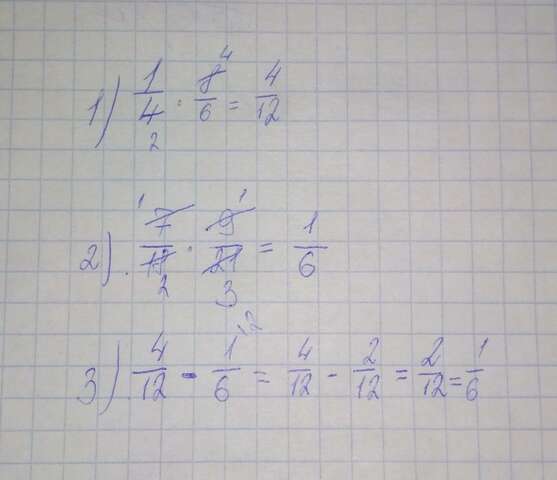 1) 1/4 2 · 8/6 4 = 4/12
2) 1 7/18 2 · 1 9/21 3 = 1/6
3) 4/12 - 1/6 \2 = 4/12 - 2/12 = 2/12 = 1/6